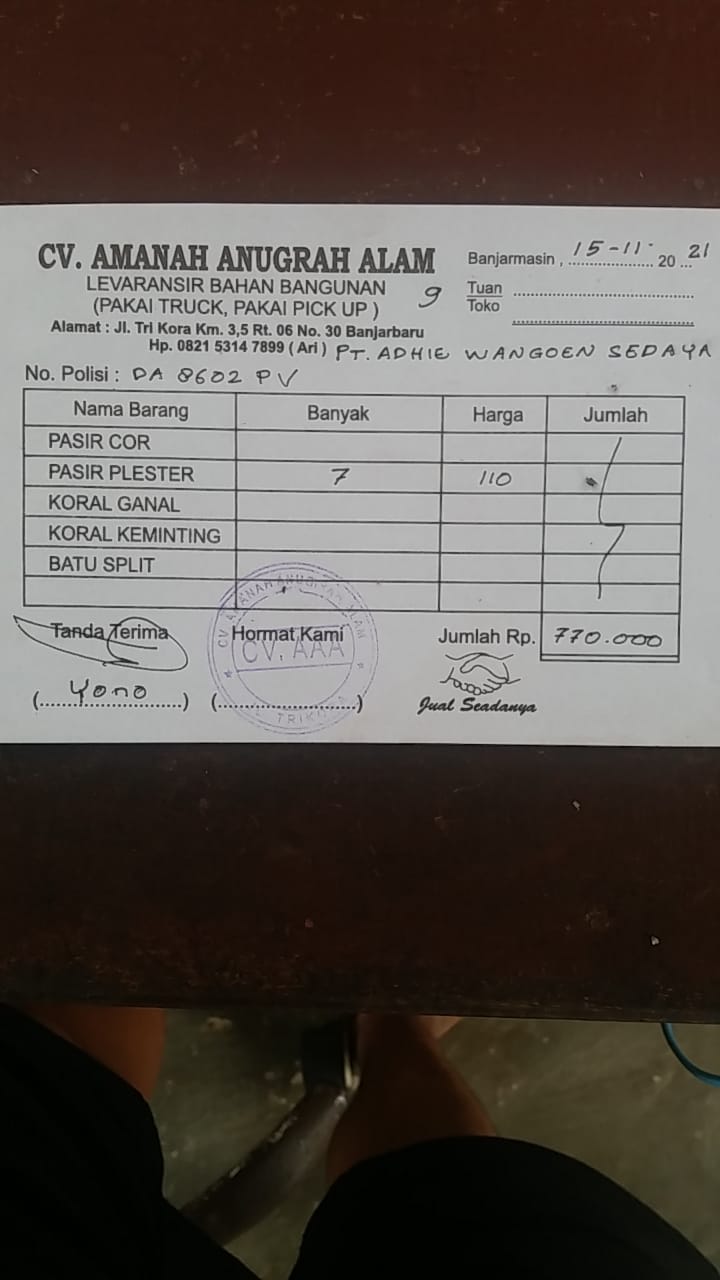 CV. AMANAH ANUGRAH ALAM
LEVARANSIR BAHAN BANGUNAN
(PAKAI TRUCK, PAKAI PICK UP )
9
Alamat : Jl. Tri Kora Km. 3,5 Rt. 06 No. 30 Banjarbaru
Hp. 0821 5314 7899 ( Ari )
Banjarmasin , 15-11- 20 21
Tuan
Toko
PT. ADHIE WANGOEN SEDAYA
No. Polisi : DA 8602 PV
Nama Barang Banyak Harga Jumlah
PASIR COR
PASIR PLESTER 7 110
KORAL GANAL
KORAL KEMINTING
BATU SPLIT
Tanda Terima Hormat Kami Jumlah Rp. 770.000
CV. AMANAH ANUGRAH ALAM
CV. AAA
TRIKORA
(Yono) (....................)
Jual Seadanya